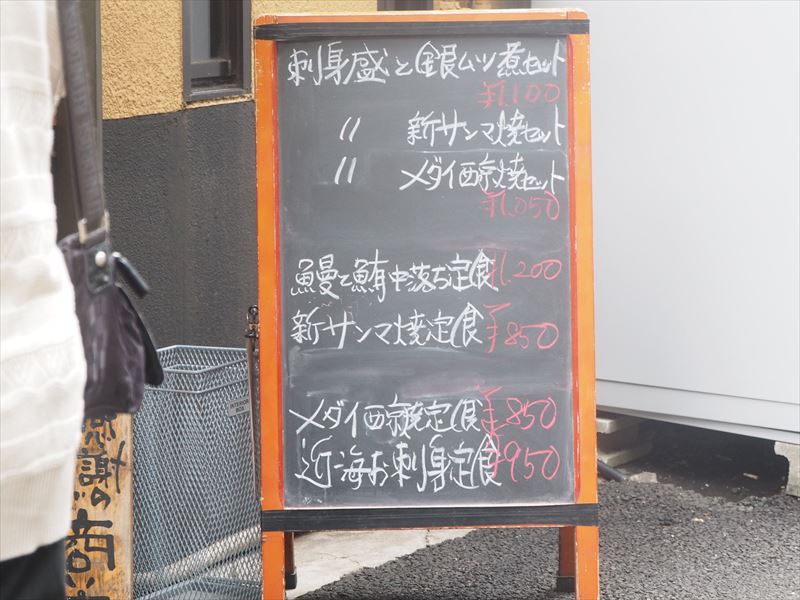 刺身盛と銀ムツ煮セット
¥1,100
〃 新サンマ焼セット
〃 メダイ西京焼セット
¥1,050
鰻と鮪中落ち定食 ¥1,200
新サンマ焼定食 ¥850
メダイ西京焼定食 ¥850
近海お刺身定食 ¥950
感謝の
商い